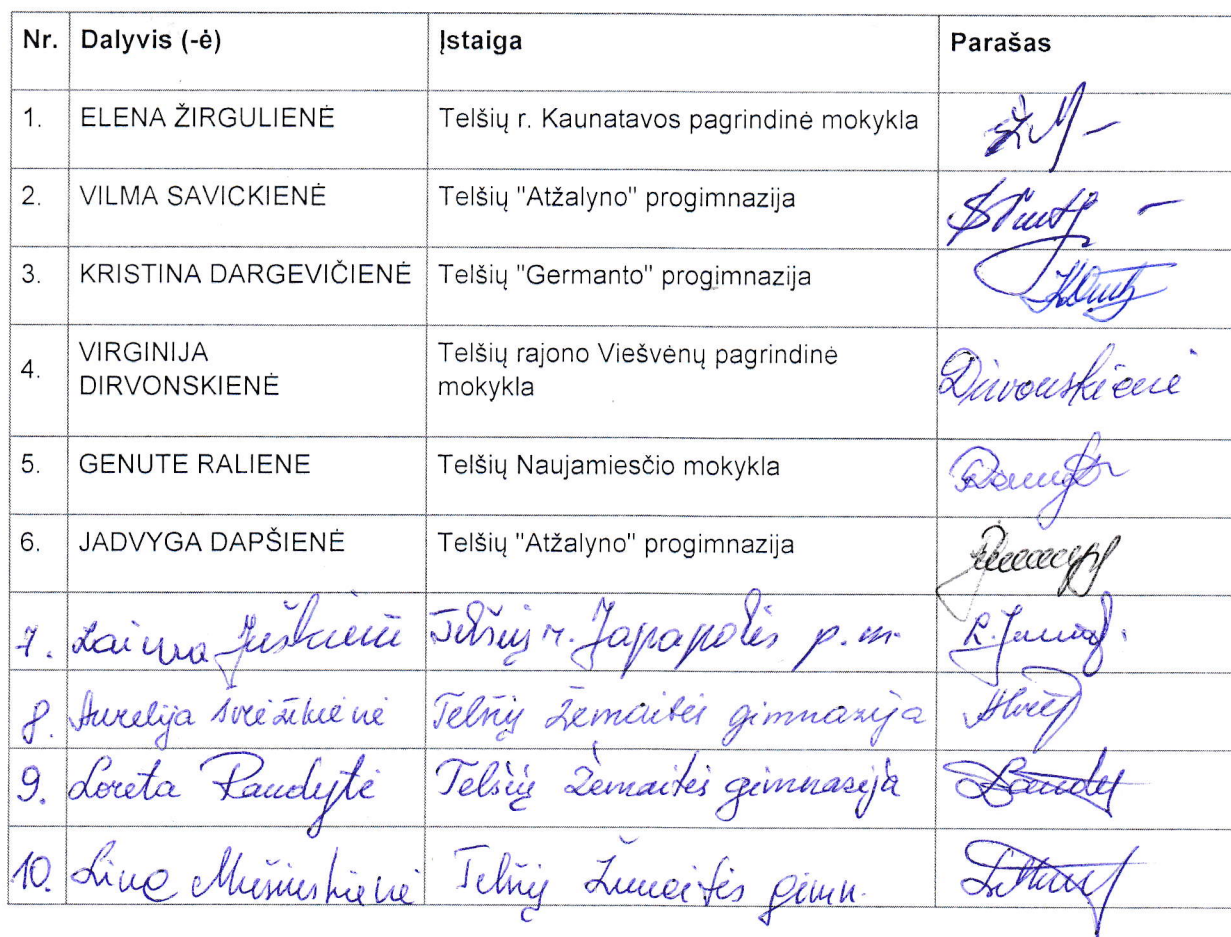 Nr. Dalyvis (-ė) Įstaiga Parašas
1. ELENA ŽIRGULIENĖ Telšių r. Kaunatavos pagrindinė mokykla
2. VILMA SAVICKIENĖ Telšių "Atžalyno" progimnazija
3. KRISTINA DARGEVIČIENĖ Telšių "Germanto" progimnazija
4. VIRGINIJA
DIRVONSKIENĖ
Telšių rajono Viešvėnų pagrindinė
mokykla
Dirvonskienė
5. GENUTE RALIENE Telšių Naujamiesčio mokykla
6. JADVYGA DAPŠIENĖ Telšių "Atžalyno" progimnazija
7. Laima Juškienė Telšių r. p. m.
8. Aurelija Telšių Žemaitės gimnazija
9. Loreta Raudytė Telšių Žemaitės gimnazija
10. Lina Telšių Žemaitės gimn.